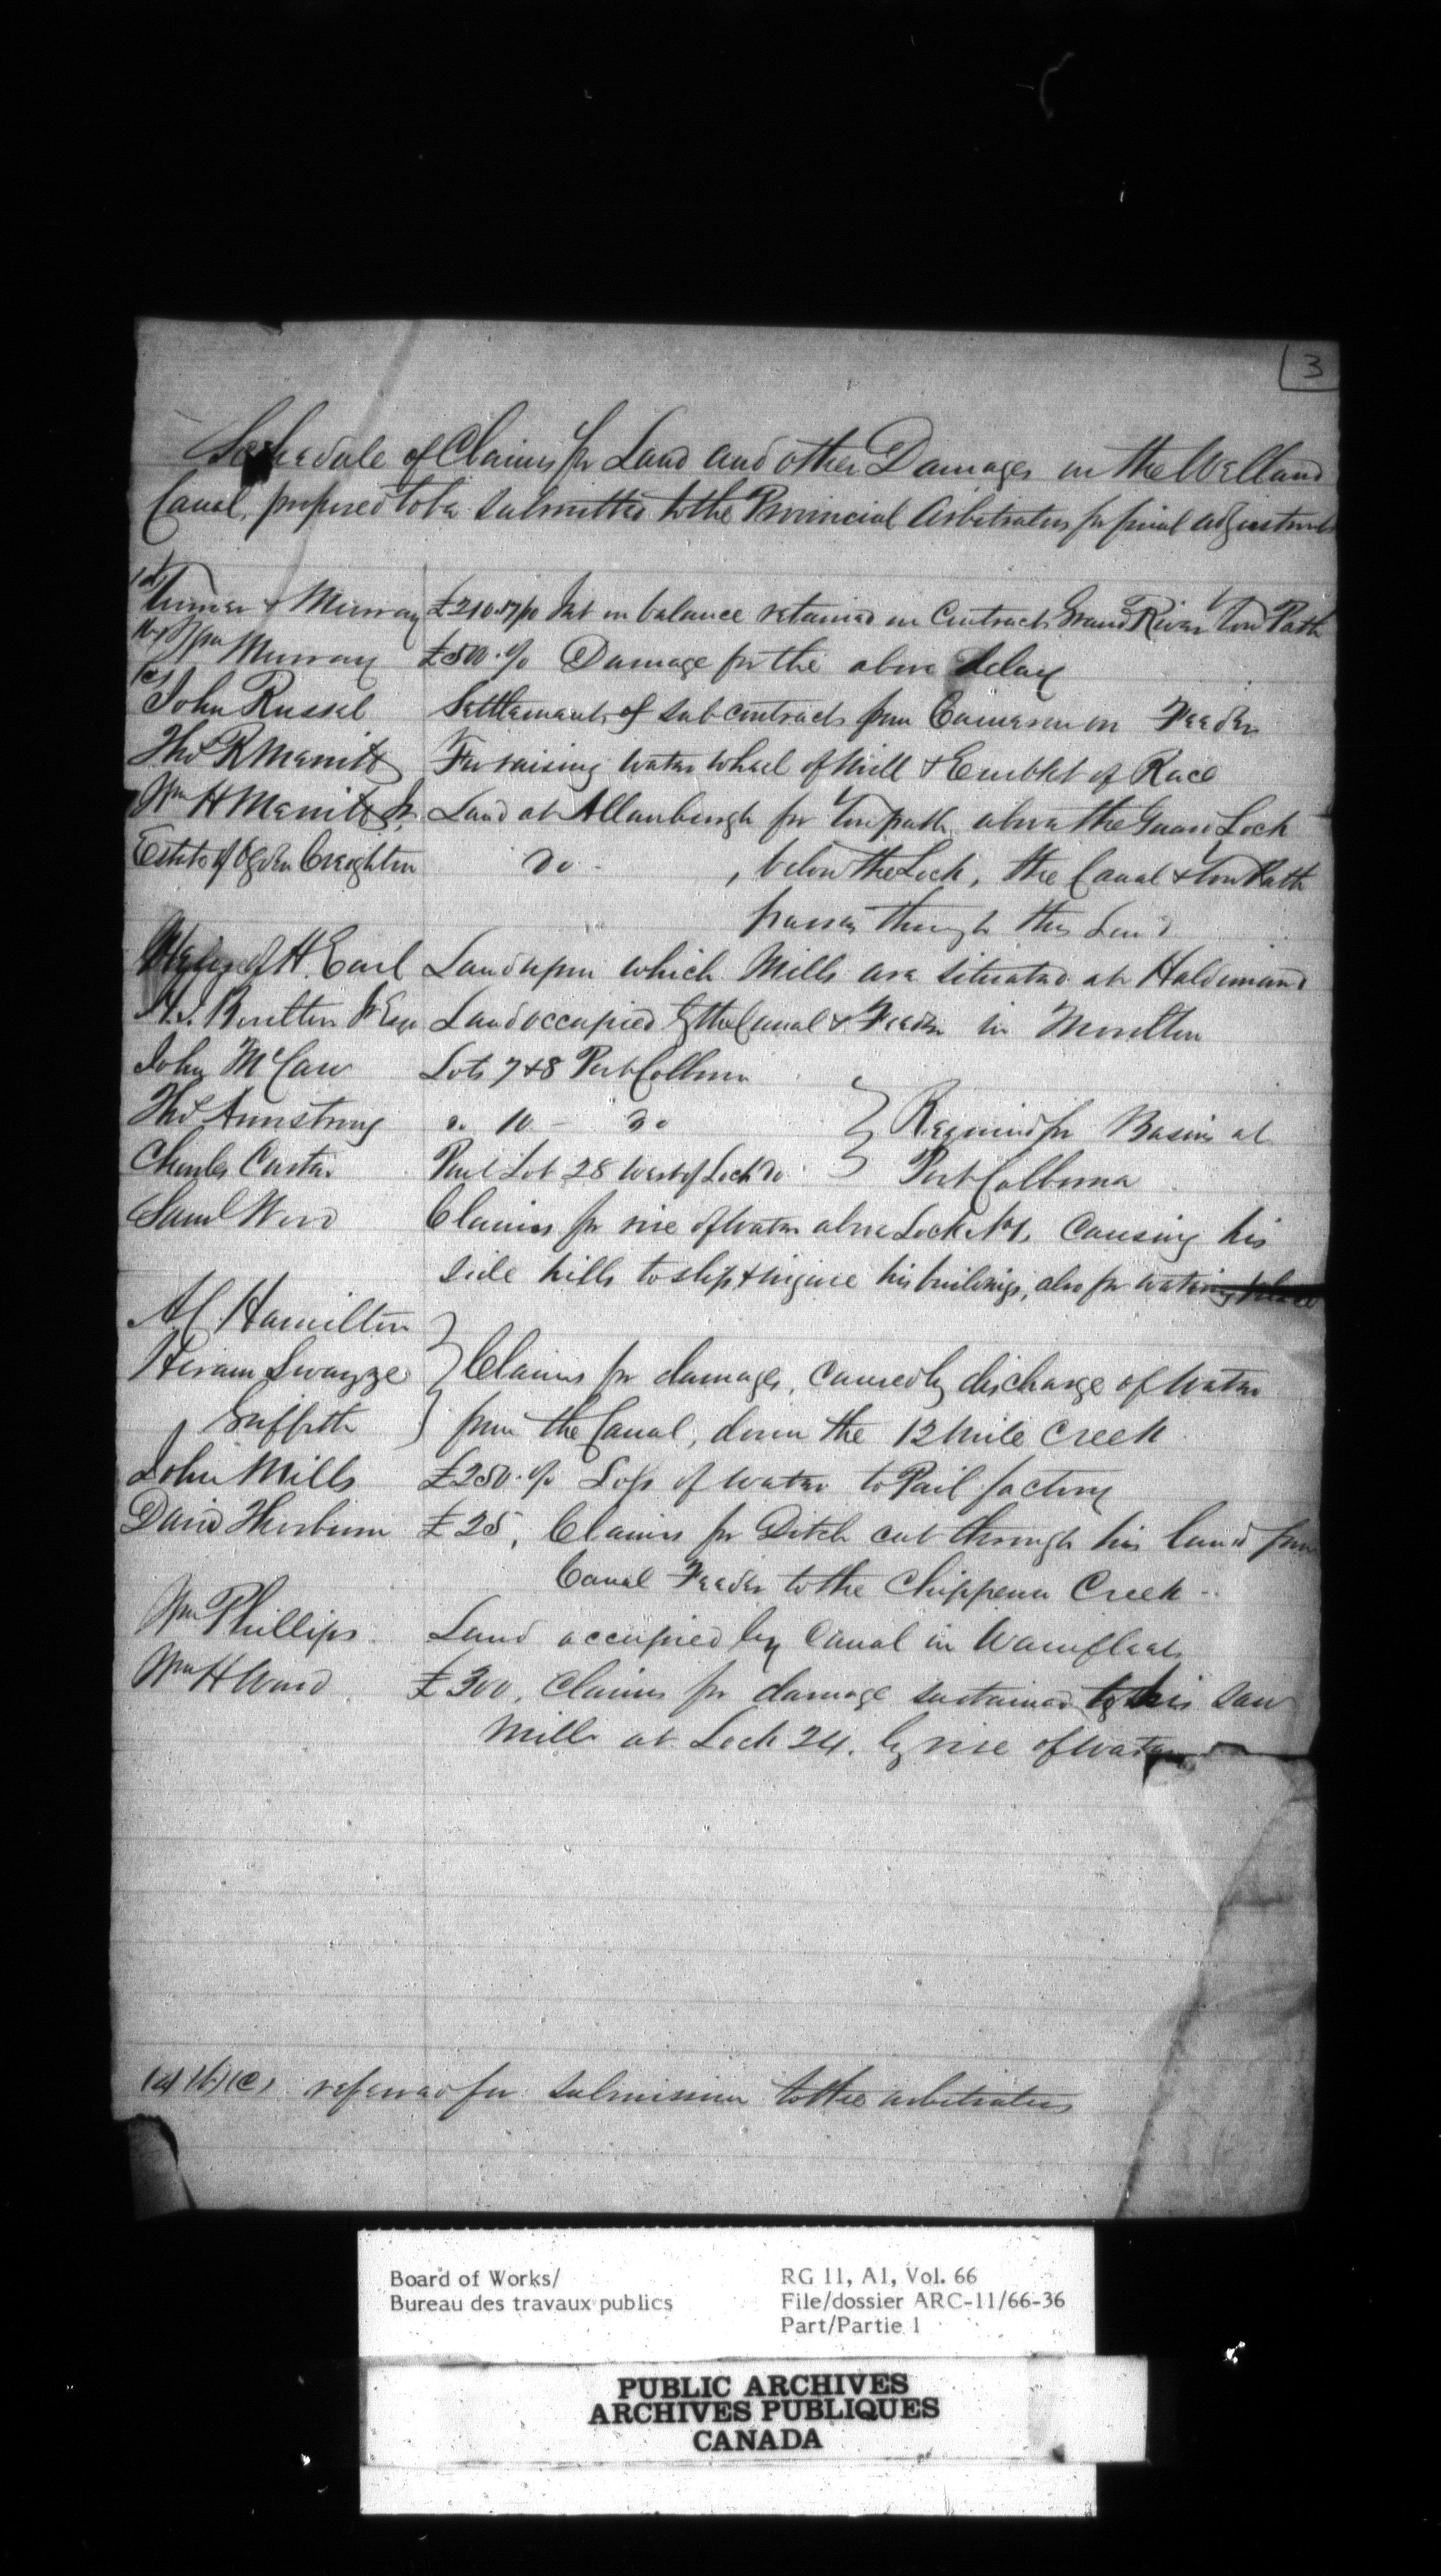 3
Schedule of Claims for Land and other Damages on the Welland
Canal, proposed to be submitted to the Provincial Arbitrators for final adjustment
(a)
Turner & Murray £210.57/0 Int on balance retained on Contract Grand River Tow Path
(b) Wm Murray £500.0/0 Damage for the above delay
(c)
John Russel Settlement of sub contract from Cameron on Feeder
Thos R Merritt For raising water wheel of Mill & Embkt of Race
Wm H Merritt Jr. Land at Allanburgh for Towpath above the Guard Lock
Estate of Ogden Creighton Do - , below the Lock, the Canal & Tow Path
passes through this Land
of H. Earl Land upon which Mills are situated at Haldimand
Boulton Jr Esqr Land occupied by the Canal & Feeder in Moulton
John McCaw Lots 7 & 8 Port Colborne
Thos Armstrong " 10 - Do } Required for Basin at
Charles Carter Part Lot 28 West of Lock Do } Port Colborne
Saml Wood Claims for rise of water above Lock No 1, Causing his
side hills to slip & injure his buildings, also for watering place
A C Hamilton }
Hiram Swayze } Claims for damages, caused by discharge of water
Griffith } from the Canal, down the 12 Mile Creek
John Mills £250.0/0 Loss of water to Pail factory
David Thorburn £25, Claims for Ditch cut through his land from
Canal Feeder to the Chippewa Creek -
Wm Phillips Land occupied by Canal in Wainfleet
Wm H Ward £300, Claims for damage sustained to his Saw
Mill at Lock 24. by rise of water
(a) (b) (c) referred for submission to the arbitrators
Board of Works/
Bureau des travaux publics
RG 11, A1, Vol. 66
File/dossier ARC-11/66-36
Part/Partie 1
PUBLIC ARCHIVES
ARCHIVES PUBLIQUES
CANADA